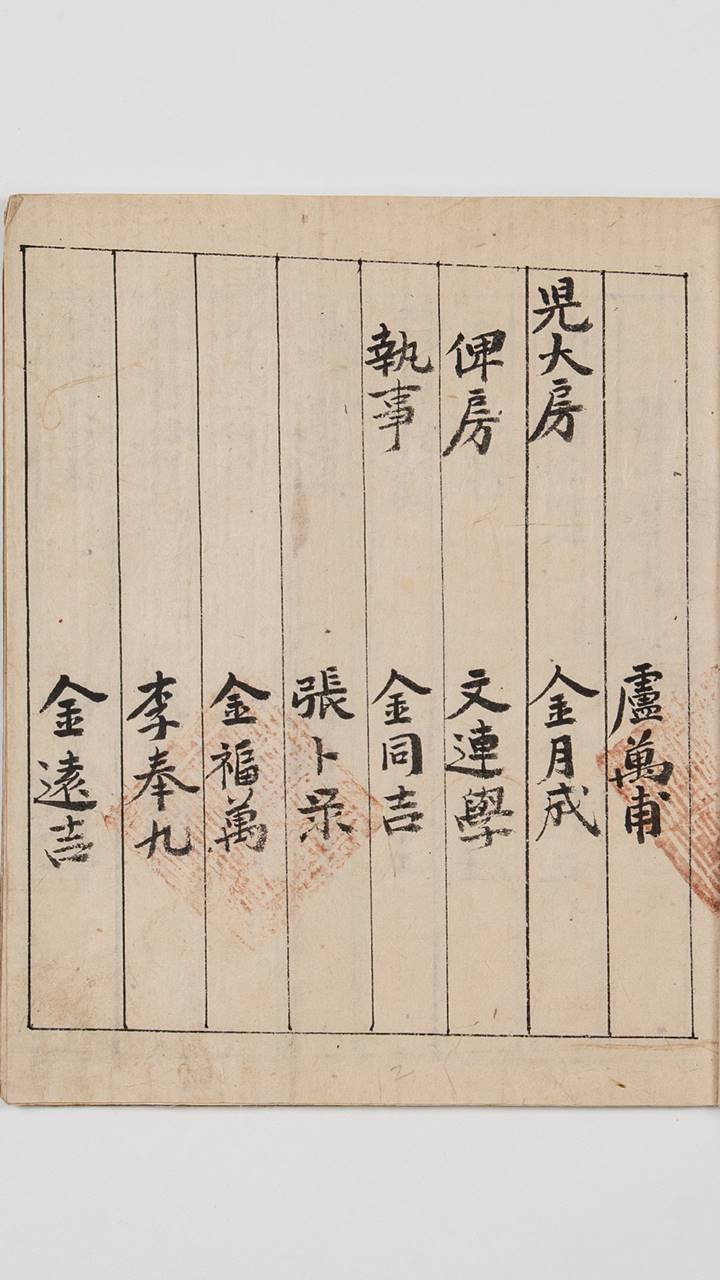 盧萬甫
児大房 金月成
俾房 文連學
執事 金同吉
張卜彔
金福萬
李奉九
金遠吉